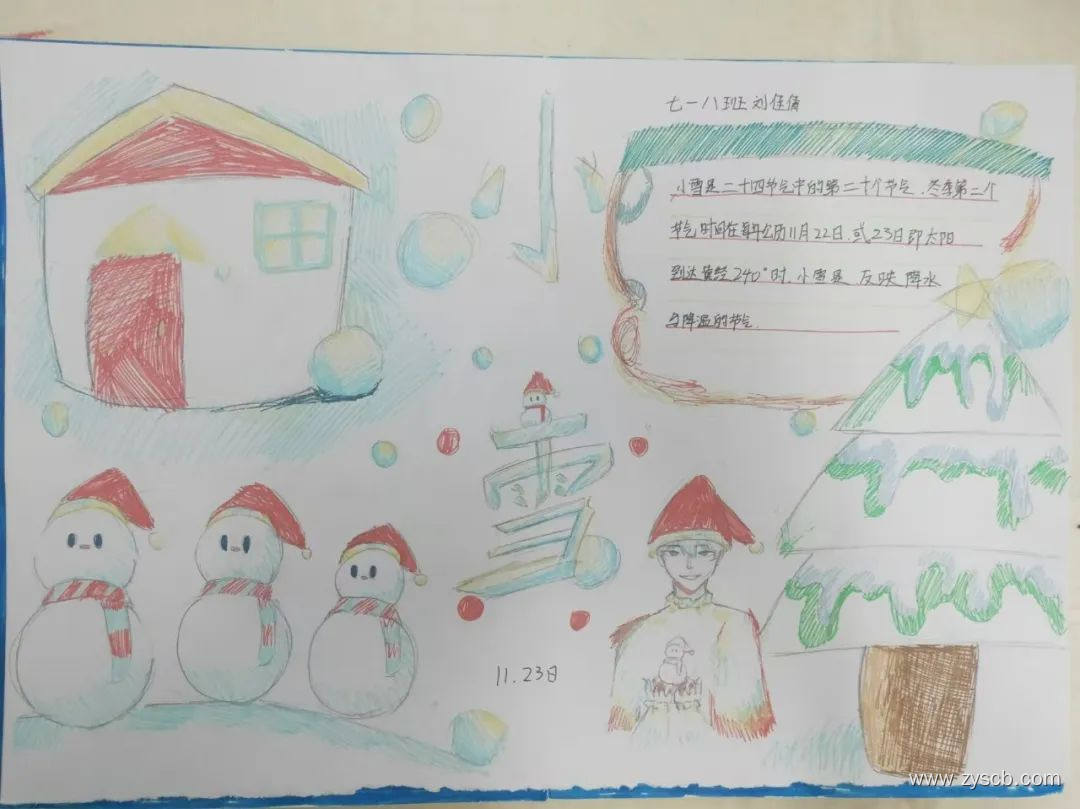 七一八班 刘佳倩
小雪
小雪是二十四节气中的第二十个节气、冬季第二个
节气时间在每年公历11月22日.或23日即太阳
到达黄经240°时.小雪是.反映降水
与降温的节气.
11.23日
www.zyscb.com